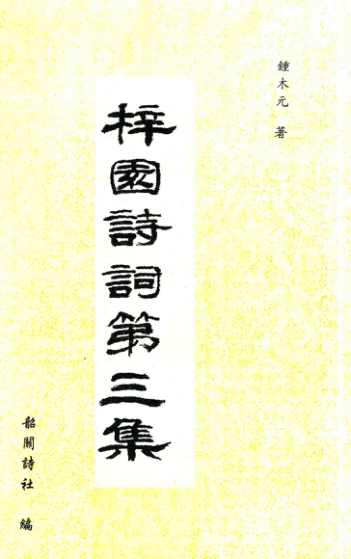 鍾木元 著
梓園詩詞第三集
韶關詩社 編